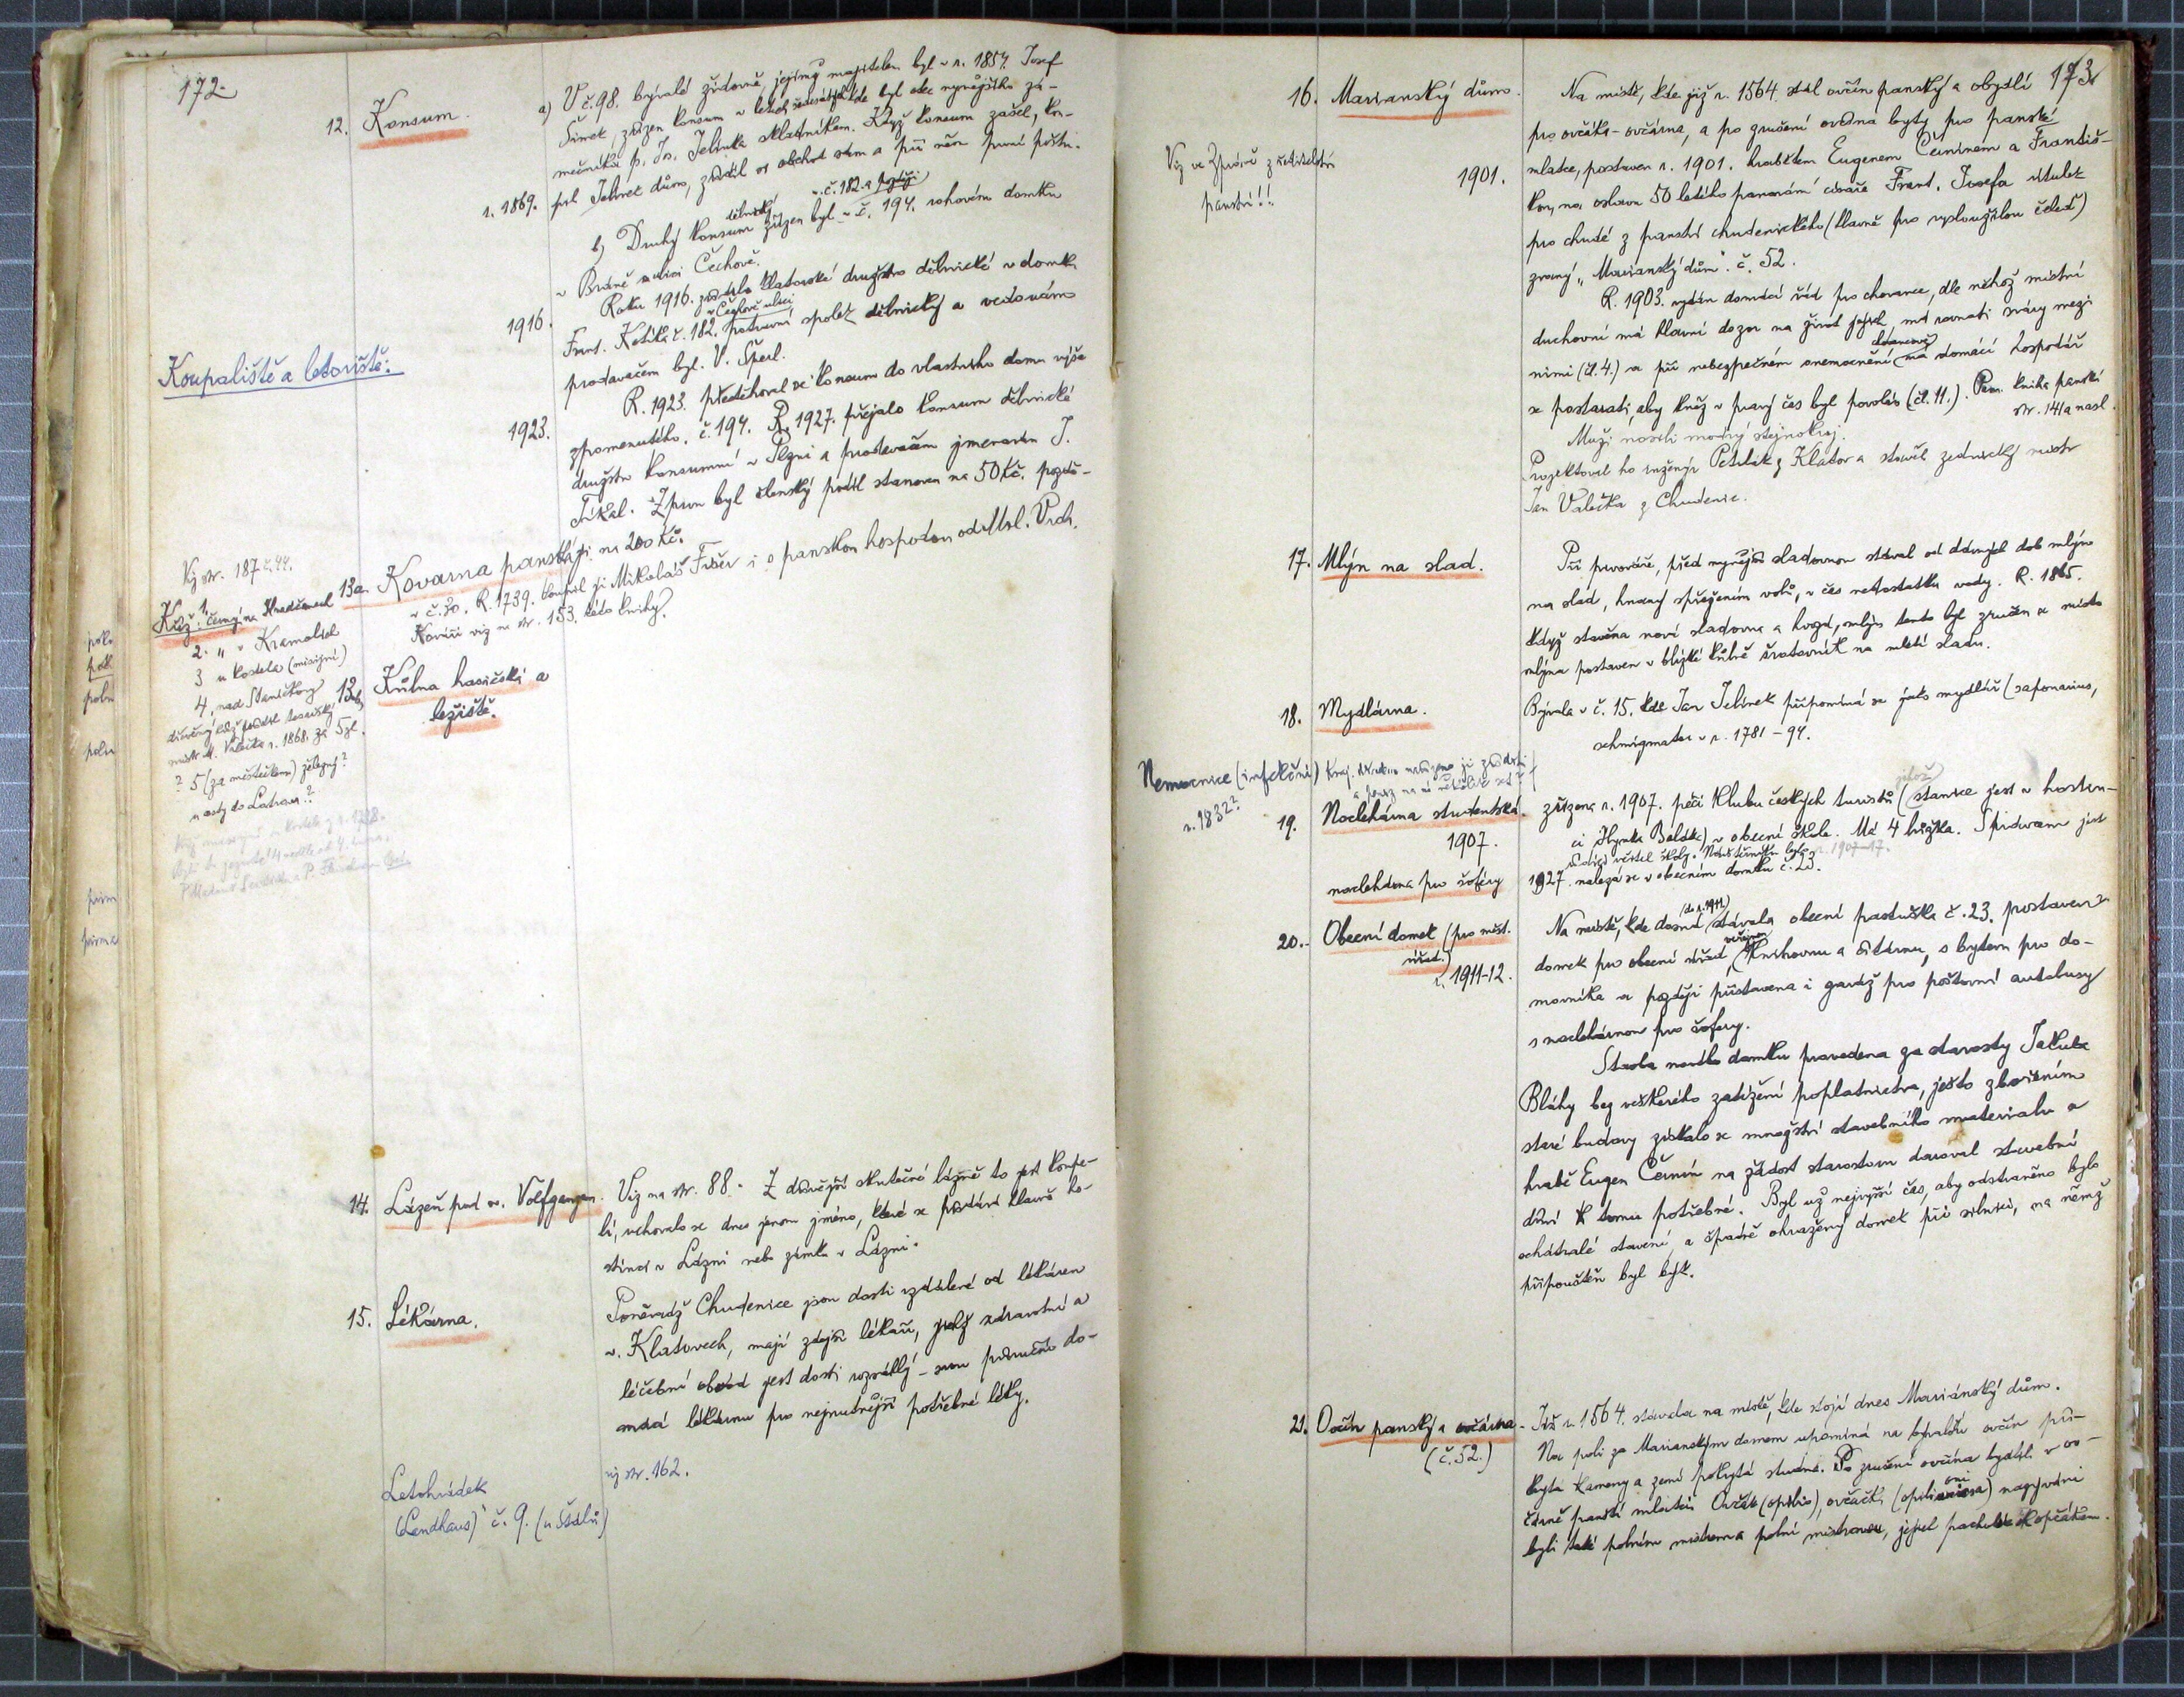 172.
12. Konsum.
a) V č. 98. bývalé židovně, jejímž majitelem byl v r. 1857. Josef
Šimek, zřízen konsum v letech šedesátých kde byl otec nynějšího zá-
mečníka p. Jos. Jelínka skladníkem. Když konsum zašel, kou-
r. 1869. pil Jelínek dům, zřídil si obchod sám a při něm první poštu.
v č. 182. a později
b) Druhý konsum dělnický zřízen byl v č. 194. rohovém domku
v Bráně v ulici Čechově.
1916. Roku 1916. zřídilo klatovské družstvo dělnické v domku
Frant. Kotíka č. 182. v Čechově ulici potravní spolek dělnický a vedoucím
prodavačem byl V. Šperl.
Koupaliště a letoviště:
1923. R. 1923. přestěhoval se konsum do vlastního domu výše
zpomenutého, č. 194. R. 1927. přejalo konsum dělnické
družstvo konsumní v Plzni a prodavačem jmenován J.
Tikal. Zprvu byl členský podíl stanoven na 50 Kč, pozdě-
ji na 200 Kč.
Viz str. 187 č. 44.
13a. Kovárna panská
v č. 30. R. 1739. koupil ji Mikoláš Fišer i s panskou hospodou od Mil. Vrch.
Kováři viz na str. 153. této knihy.
Kříž: 1. Černý na Hradčanech
2. " v Kramolích
3 u kostela (misijní)
4. nad Staničkou
dřevěný kříž tesařský
mistr M. Valečka r. 1868. za 5 zl.
? 5 (za městečkem) železný?
u cesty do Lučan??
13b. Kůlna hasičská a
ležiště.
14. Lázeň pod sv. Volfgangem. Viz na str. 88. Z dřívější skutečné lázně to jest koupe-
lí, uchovalo se dnes jenom jméno, které se podává hlavně ho-
stinci v Lázni nebo zámku v Lázni.
15. Lékárna. Poněvadž Chudenice jsou dosti vzdálené od lékáren
v Klatovech, mají zdejší lékaři, jichž zdravotní a
léčebný obvod jest dosti rozsáhlý – svou příruční do-
mácí lékárnu pro nejnutnější potřebné léky.
Letohrádek viz str. 162.
(Landhaus) č. 9. (u Štálů)
173.
16. Marianský dům. Na místě, kde již r. 1564. stál ovčín panský a obydlí
pro ovčáka – ovčárna, a po zrušení ovčína byty pro panské
Viz ve Zprávě z ředitelství
panství!!
1901. mlatce, postaven r. 1901. hrabětem Eugenem Černínem a Františ-
kou, na oslavu 50 letého panování císaře Frant. Josefa útulek
pro chudé z panství chudenického (hlavně pro vysloužilou čeleď)
zvaný „Marianský dům". č. 52.
R. 1903. vydán domácí řád pro chovance, dle něhož místní
duchovní má hlavní dozor na život jejich, má rovnati sváry mezi
nimi (čl. 4.) a při nebezpečném onemocnění chovanců má domácí hospodář
se postarati, aby kněz v pravý čas byl povolán (čl. 11.). Pam. kniha panská
str. 141 a násl.
Muži nosili modrý stejnokroj.
Projektoval ho inženýr Petrlák z Klatov a stavěl zednický mistr
Jan Valečka z Chudenic.
17. Mlýn na slad. Při pivováře, před nynější sladovnou stával od dávných dob mlýn
na slad, hnaný spřežením volů, v čas nedostatku vody. R. 1865.
když stavěna nová sladovna a hvozd, mlýn tento byl zrušen a místo
mlýna postaven v blízké kůlně šrotovník na mletí sladu.
18. Mydlárna. Bývala v č. 15. kde Jan Jelínek připomíná se jako mydlář (saponarius,
schmigmator v r. 1781 – 94.
Nemocnice (infekční)
r. 1832?
19. Noclehárna studentská. zřízena r. 1907. péčí Klubu českých turistů (stanice jest v hostin-
1907. ci Hynka Bělky) v obecní škole. Má 4 lůžka. Správcem jest
řídící učitel školy. Návštěvníků bylo r. 1907–17.
noclehárna pro šoféry 1927. nalezá se v obecním domku č. 23.
20. Obecní domek (pro měst. Na místě, kde dosud (do r. 1911) stávala obecní pastuška č. 23. postaven
úřad.) domek pro obecní úřad, veřejnou knihovnu a čítárnu, s bytem pro do-
r. 1911-12. movníka a později přistavena i garáž pro poštovní autobusy
s noclehárnou pro šoféry.
Stavba nového domku provedena za starosty Jakuba
Bláhy bez veškerého zatížení poplatnictva, ješto zbořením
staré budovy získalo se množství stavebního materialu a
hrabě Eugen Černín na žádost starostovu daroval stavební
dříví k tomu potřebné. Byl už nejvyšší čas, aby odstraněno bylo
ochátralé stavení a špatně ohražený domek při silnici, na němž
připouštěn byl býk.
21. Ovčín panský a ovčárna. Již r. 1564. stávala na místě, kde stojí dnes Mariánský dům.
(č. 52.) Na poli za Marianským domem upomíná na bývalý ovčín při-
krytá kameny a zemí pokrytá studna. Po zrušení ovčína bydleli v ov-
čárně panští mlatci. Ovčák (opilio), ovčáčka nazýváni
byli také polním mistrem a polní mistrovou, jejich pacholek skopčákem.